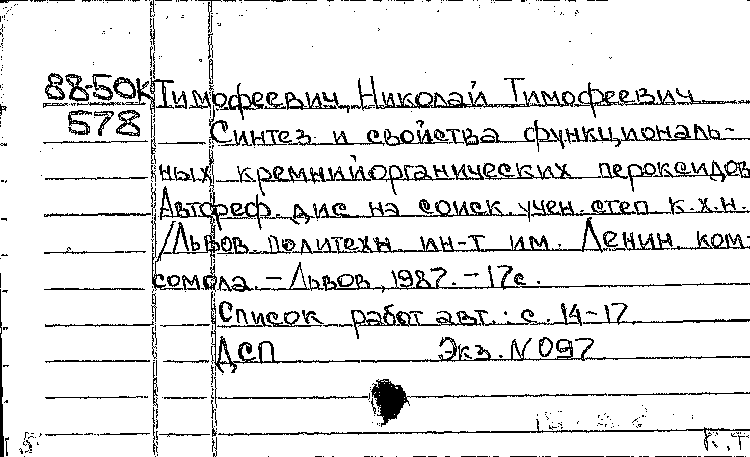 88-50К Тимофеевич, Николай Тимофеевич
578 Синтез и свойства функциональ-
ных кремнийорганических пероксидов
Автореф. дис на соиск. учен. степ к.х.н.
/Львов. политехн ин-т им. Ленин. ком-
сомола. - Львов, 1987. - 17с.
Список работ авт.: с. 14-17
ДСП Экз. N 097
К.Т